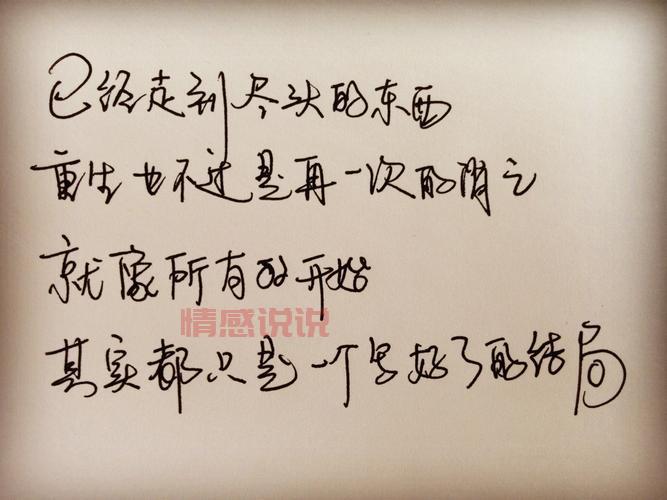 已经走到尽头的东西
重生也不过是再一次的消亡
就像所有的开始
情感说说
其实都只是一个写好了的结局